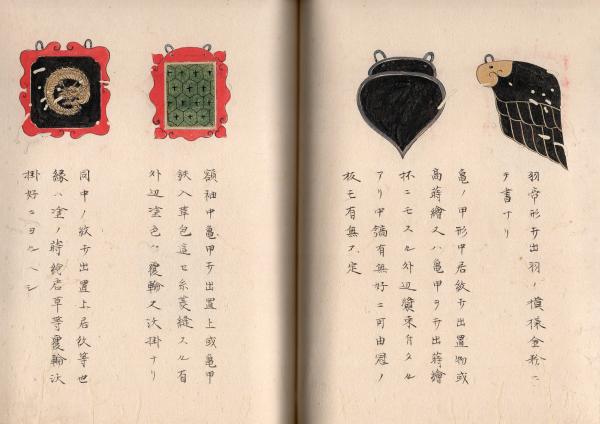 羽帝形ヲ出羽ノ模様金粉ニ
テ書ナリ
亀ノ甲形中居紋ヲ出置物或
高蒔繪又ハ亀甲ヲ出蒔繪
杯ニモスル外辺
アリ中鎬有無好ニ可由冠ノ
板モ有無不定
額袖中亀甲ヲ出置上或亀甲
鉄入革包這セ糸菱縫スル有
外辺塗色ハ覆輪又沃掛ナリ
同中ノ紋ヲ出置上居紋等也
縁ハ塗ノ蒔繪居草等覆輪沃
掛好ニヨルヘシ